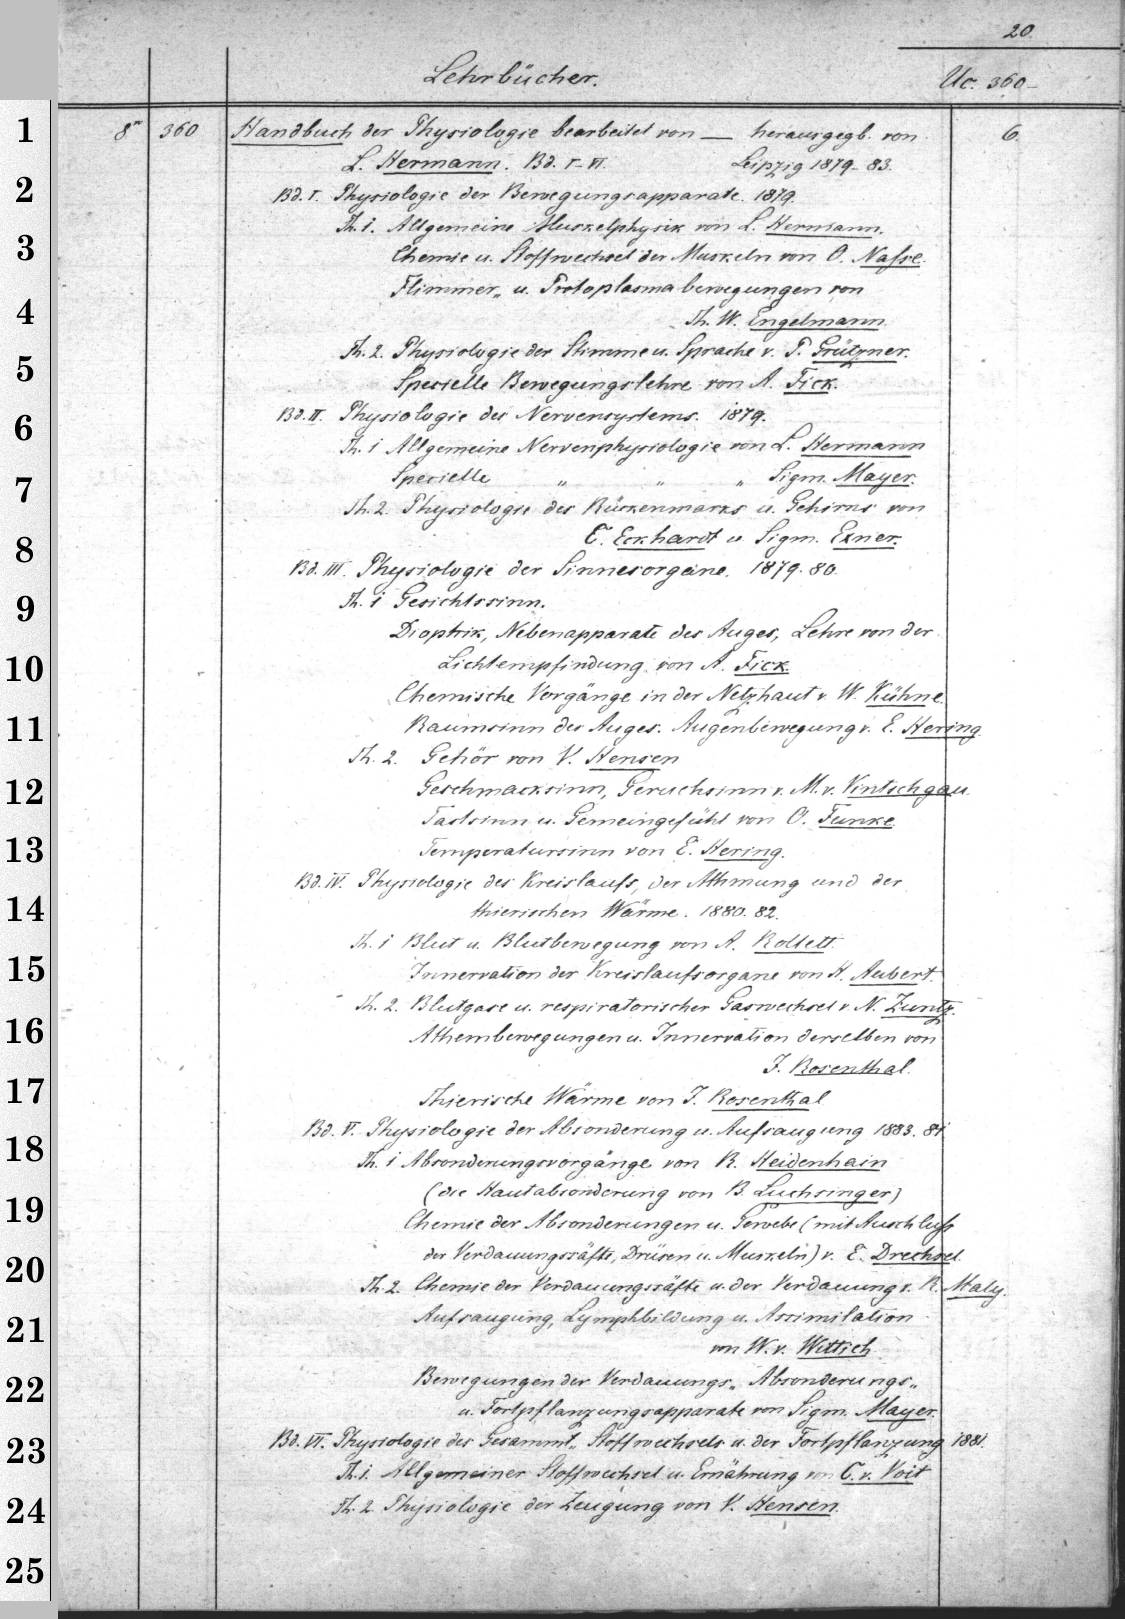 20.
Lehrbücher.
Uc. 360
1
8° 360 Handbuch der Physiologie bearbeitet von — herausgegb. von 6.
L. Hermann. Bd. I-VI. Leipzig 1879-83.
2
Bd. I. Physiologie der Bewegungsapparate. 1879.
Th. 1. Allgemeine Muskelphysik von L. Hermann.
3
Chemie u. Stoffwechsel der Muskeln von O. Nasse.
Flimmer„ u. Protoplasmabewegungen von
4
Th. W. Engelmann.
Th. 2. Physiologie der Stimme u. Sprache v. P. Grützner.
5
Specielle Bewegungslehre von A. Fick.
Bd. II. Physiologie des Nervensystems. 1879.
6
Th. 1 Allgemeine Nervenphysiologie von L. Hermann
Specielle „ „ „ Sigm. Mayer.
7
Th. 2. Physiologie des Rückenmarks u. Gehirns von
C. Eckhardt u. Sigm. Exner.
8
Bd. III. Physiologie der Sinnesorgane. 1879. 80.
Th. 1 Gesichtssinn.
9
Dioptrik, Nebenapparate des Auges, Lehre von der
Lichtempfindung von A. Fick.
10
Chemische Vorgänge in der Netzhaut v. W. Kühne.
Raumsinn des Auges. Augenbewegung v. E. Hering
11
Th. 2. Gehör von V. Hensen
Geschmacksinn, Geruchsinn v. M. v. Vintschgau.
12
Tastsinn u. Gemeingefühl von O. Funke.
Temperatursinn von E. Hering.
13
Bd. IV. Physiologie des Kreislaufs, der Athmung und der
thierischen Wärme. 1880. 82.
14
Th. 1 Blut u. Blutbewegung von A. Rollett.
Innervation der Kreislaufsorgane von H. Aubert.
15
Th. 2. Blutgase u. respiratorischer Gaswechsel v. N. Zuntz.
Athembewegungen u. Innervation derselben von
16
J. Rosenthal.
Thierische Wärme von J. Rosenthal
17
Bd. V. Physiologie der Absonderung u. Aufsaugung 1883. 81.
Th. 1 Absonderungsvorgänge von R. Heidenhain
18
(die Hautabsonderung von B. Luchsinger)
Chemie der Absonderungen u. Gewebe (mit Auschluss
19
der Verdauungssäfte, Drüsen u. Muskeln) v. E. Drechsel.
20
Th. 2. Chemie der Verdauungssäfte u. der Verdauung v. R. Maly.
Aufsaugung, Lymphbildung u. Assimilation
21
von W. v. Wittich
Bewegungen der Verdauungs„ Absonderungs„
22
u. Fortpflanzungsapparate von Sigm. Mayer.
Bd. VI. Physiologie des Gesammt„ Stoffwechsels u. der Fortpflanzung 1881.
23
Th. 1. Allgemeiner Stoffwechsel u. Ernährung von C. v. Voit
Th. 2 Physiologie der Zeugung von V. Hensen.
24
25